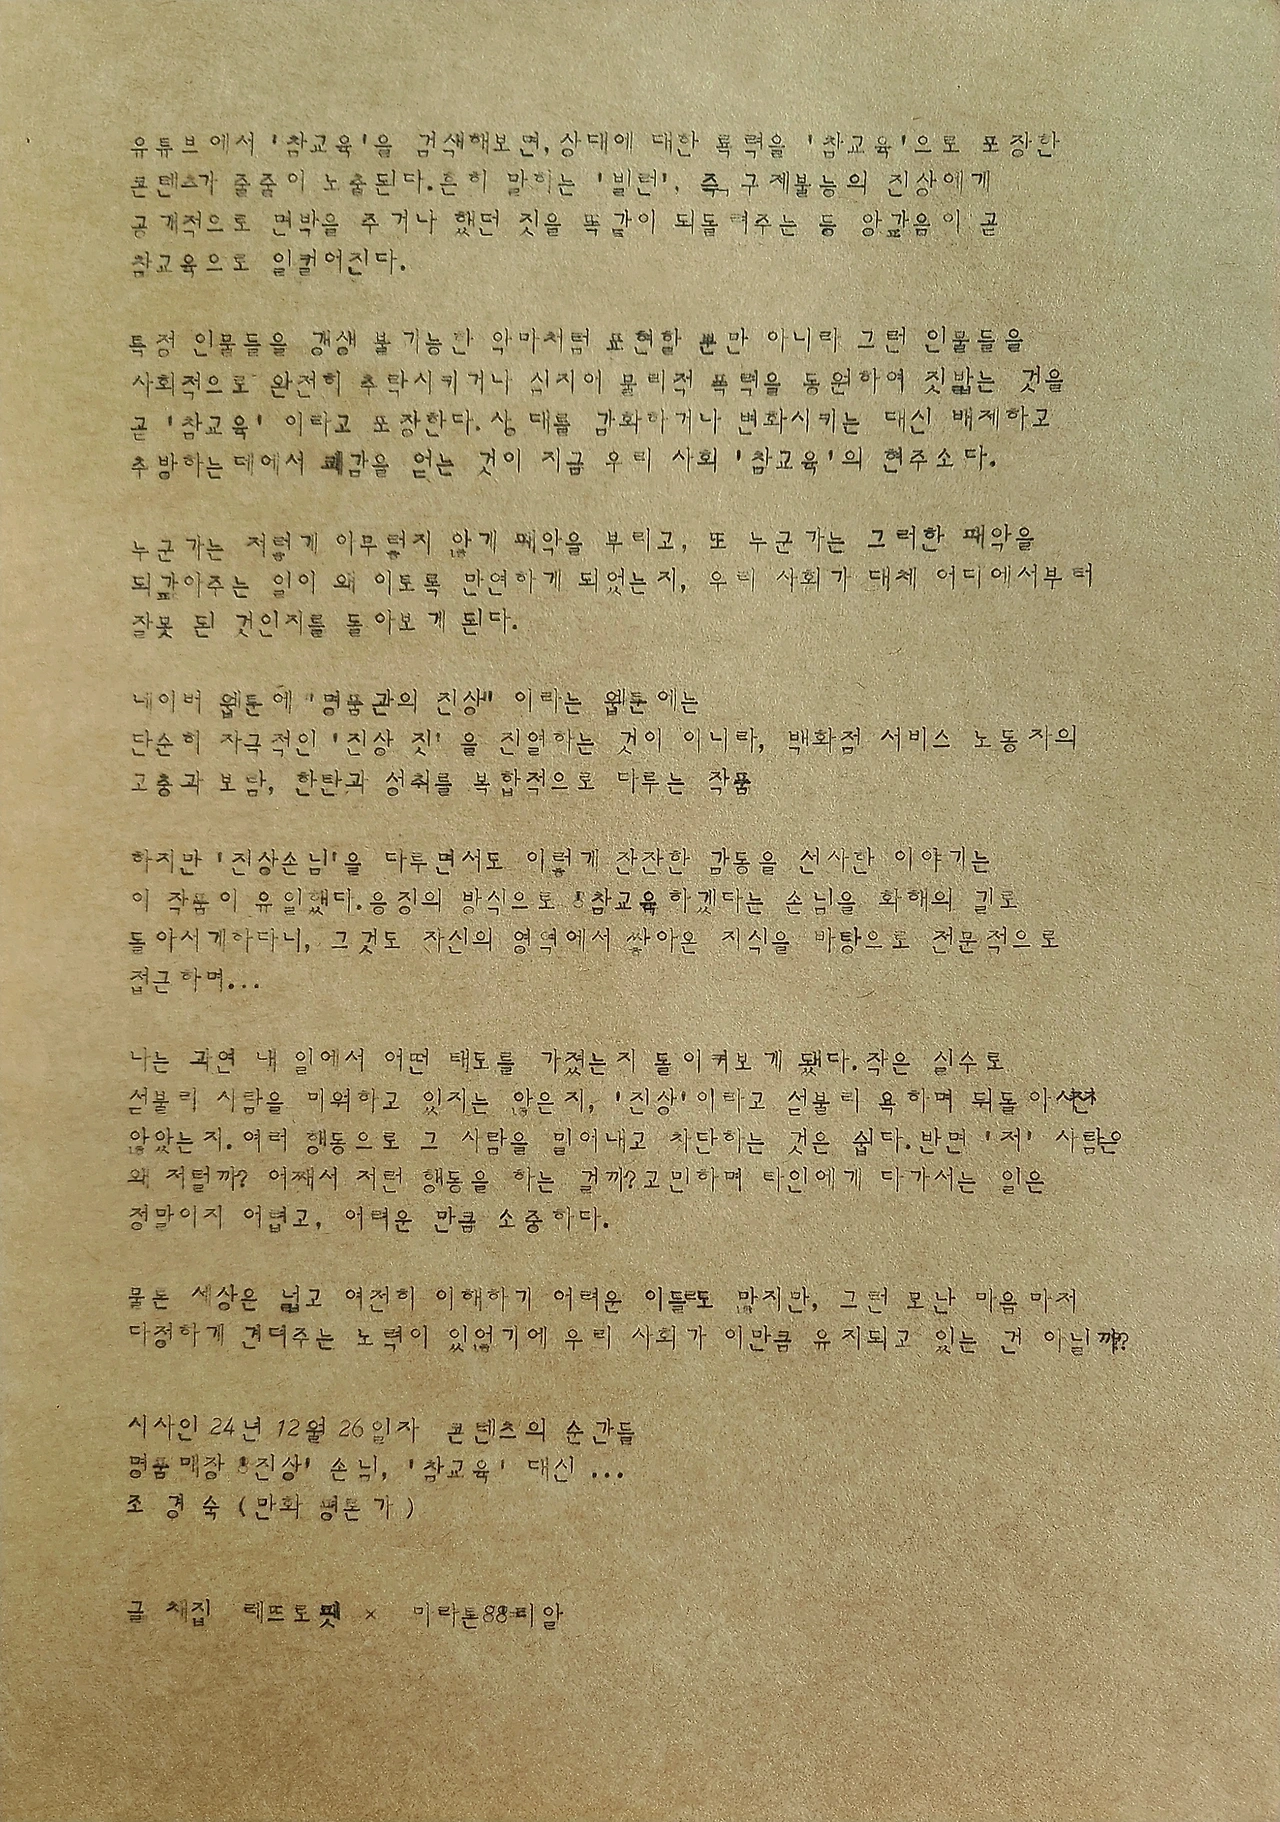 유튜브에서 '참교육'을 검색해보면, 상대에 대한 폭력을 '참교육'으로 포장한
콘텐츠가 줄줄이 노출된다.흔히 말하는 '빌런', 즉, 구제불능의 진상에게
공개적으로 면박을 주거나 했던 짓을 똑같이 되돌려주는 등 앙갚음이 곧
참교육으로 일컬어진다.
특정 인물들을 갱생 불가능한 악마처럼 표현할 뿐만 아니라 그런 인물들을
사회적으로 완전히 추락시키거나 심지어 물리적 폭력을 동원하여 짓밟는 것을
곧 '참교육' 이라고 포장한다.상대를 감화하거나 변화시키는 대신 배제하고
추방하는데에서 쾌감을 얻는 것이 지금 우리 사회 '참교육'의 현주소다.
누군가는 저렇게 아무렇지 않게 패악을 부리고, 또 누군가는 그러한 패악을
되갚아주는 일이 왜 이토록 만연하게 되었는지, 우리 사회가 대체 어디에서부터
잘못 된 것인지를 돌아보게 된다.
네이버 웹툰에 '명품관의 진상" 이라는 웹툰에는
단순히 자극적인 '진상 짓' 을 진열하는 것이 아니라, 백화점 서비스 노동자의
고충과 보람, 한탄과 성취를 복합적으로 다루는 작품
하지만 '진상손님'을 다루면서도 이렇게 잔잔한 감동을 선사한 이야기는
이 작품이 유일했다.응징의 방식으로 '참교육하겠다는 손님을 화해의 길로
돌아서게하다니, 그것도 자신의 영역에서 쌓아온 지식을 바탕으로 전문적으로
접근하며...
나는 과연 내 일에서 어떤 태도를 가졌는지 돌이켜보게 됐다.작은 실수로
섣불리 사람을 미워하고 있지는 않은지, '진상'이라고 섣불리 욕하며 뒤돌아서진
않았는지.여러 행동으로 그 사람을 밀어내고 차단하는 것은 쉽다.반면 '저' 사람은
왜 저럴까? 어째서 저런 행동을 하는 걸까?고민하며 타인에게 다가서는 일은
정말이지 어렵고, 어려운 만큼 소중하다.
물론 세상은 넓고 여전히 이해하기 어려운 이들도 많지만, 그런 모난 마음마저
다정하게 견뎌주는 노력이 있었기에 우리 사회가 이만큼 유지되고 있는 건 아닐까?
시사인 24년 12월 26일자 콘텐츠의 순간들
명품매장 '진상' 손님, '참교육' 대신 ...
조 경 숙 (만화 평론가)
글 채집 레뜨로핏 × 마라톤88타알